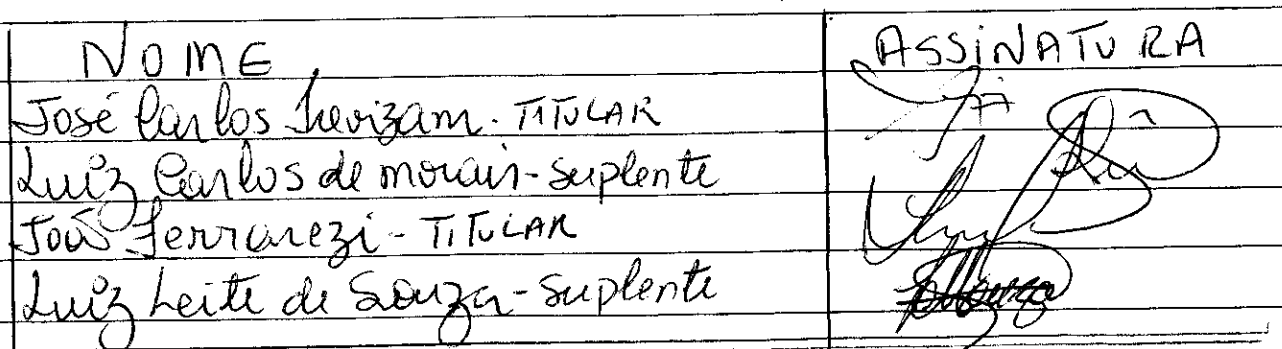 NOME ASSINATURA
José Carlos Trevizam - TITULAR
Luiz Carlos de morais - suplente
João Ferrarezi - TITULAR
Luiz Leite de Souza - suplente